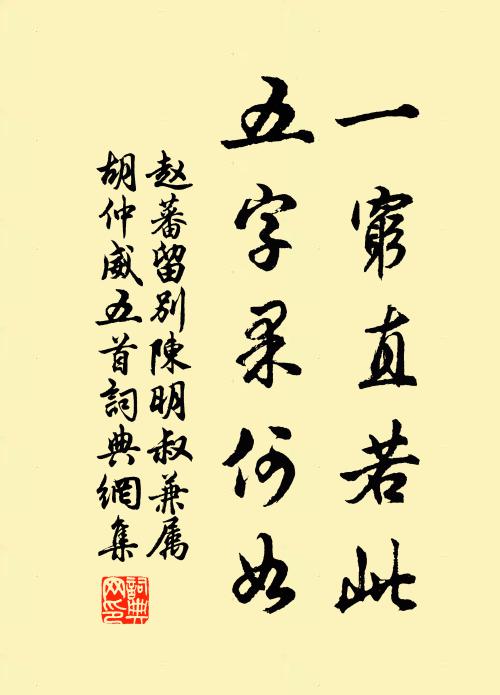 一窮直若此
五字果何如
赵蕃留别陳明叔兼属
胡仲威五首詞典網集
詞典
网印